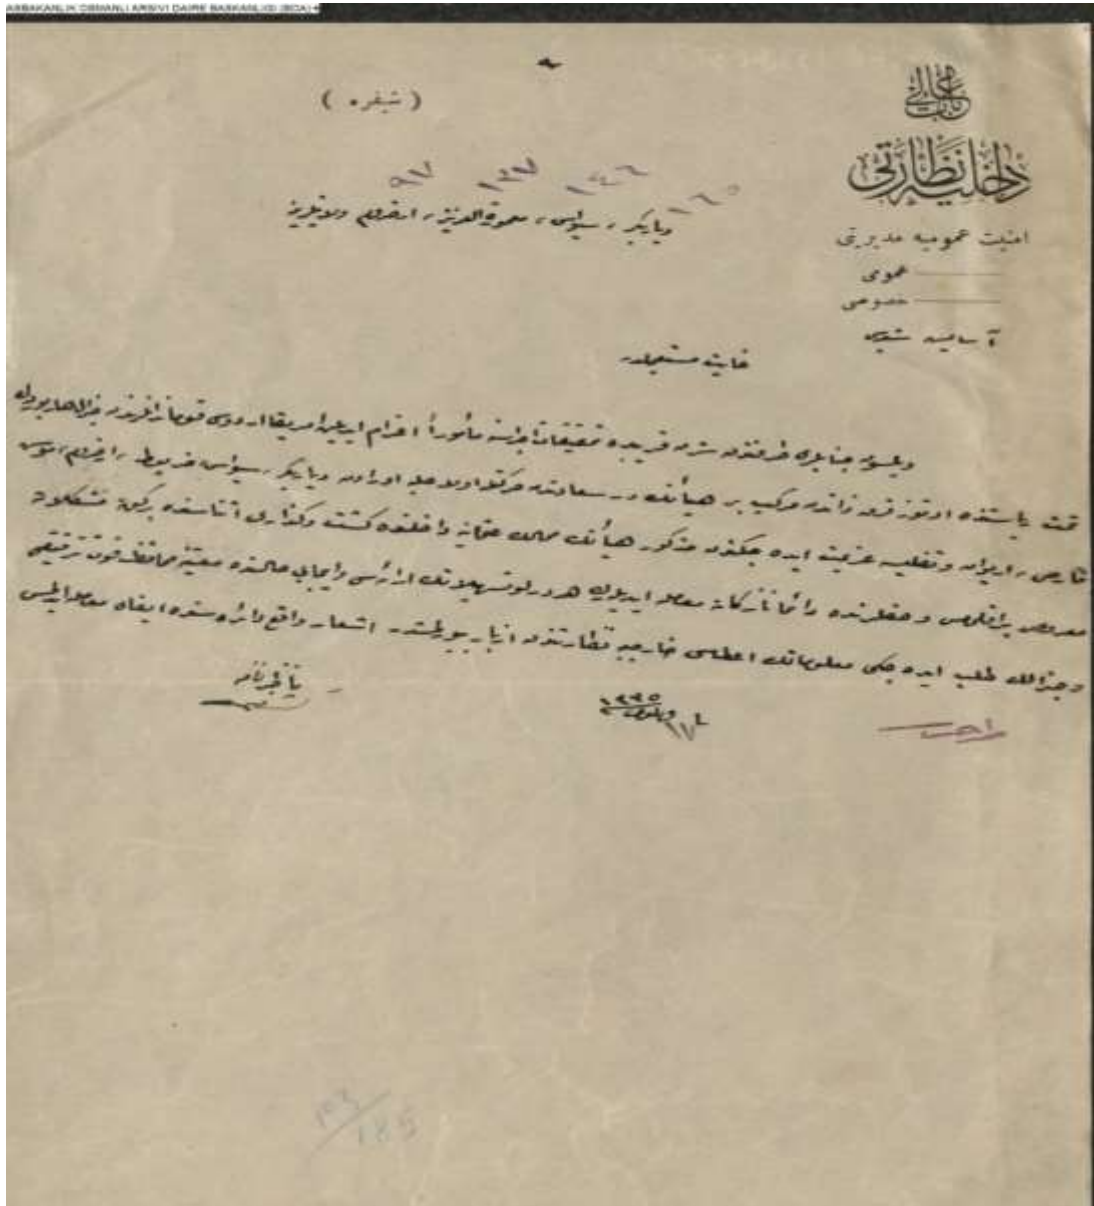 BAŞBAKANLIK OSMANLI ARŞİVİ DAİRE BAŞKANLIĞI (BOA)
باب عالی
داخلیه نظارتی
امنیت عمومیه مدیریتی
عمومی
خصوصی
آسایش شعبه‌سی
( شیفره )
١٦٥ ١٤٦ ١٣٧ ٩٧
دیاربکر ، سیواس ، معمورة العزیز ، ارضروم ولایتلرینه
غایت مستعجلدر
ویلسون جنابلری طرفندن شرق قریبده تحقیقات اجراسنه مأموراً اعزام ایدیلن امریقا اردوسی قوماندانلرندن جنرال هاربوردك
تحت ریاستنده اوتوز قدر ذاتدن مرکب بر هیأتك در سعادتدن حرکتله اولا حلبه اورادن دیاربکر ، سیواس خربوط ، ارضروم
قارص ، اریوان و تفلیسه عزیمت ایده‌جکندن مذکور هیأتك ممالك عثمانیه داخلنده کشت وکذاری اثناسنده بر کونه مشکلاته
معروض براقلمامسی و حقلرنده دائما نازکانه معامله ایدیله‌رك هر درلو تسهیلاتك ارائه‌سی وایجابی حالنده معیتنه محافظ قوت ترفیقی
وجنرالك طلب ایده‌جکی معلوماتك اعطاسی خارجیه نظارتندن ازبار بیورلمشدر اشعار واقع دائره‌سنده ایفای معامله ایدلمسی
ناظر نامنه
١٣٣٥
١٠٣/١٨٥